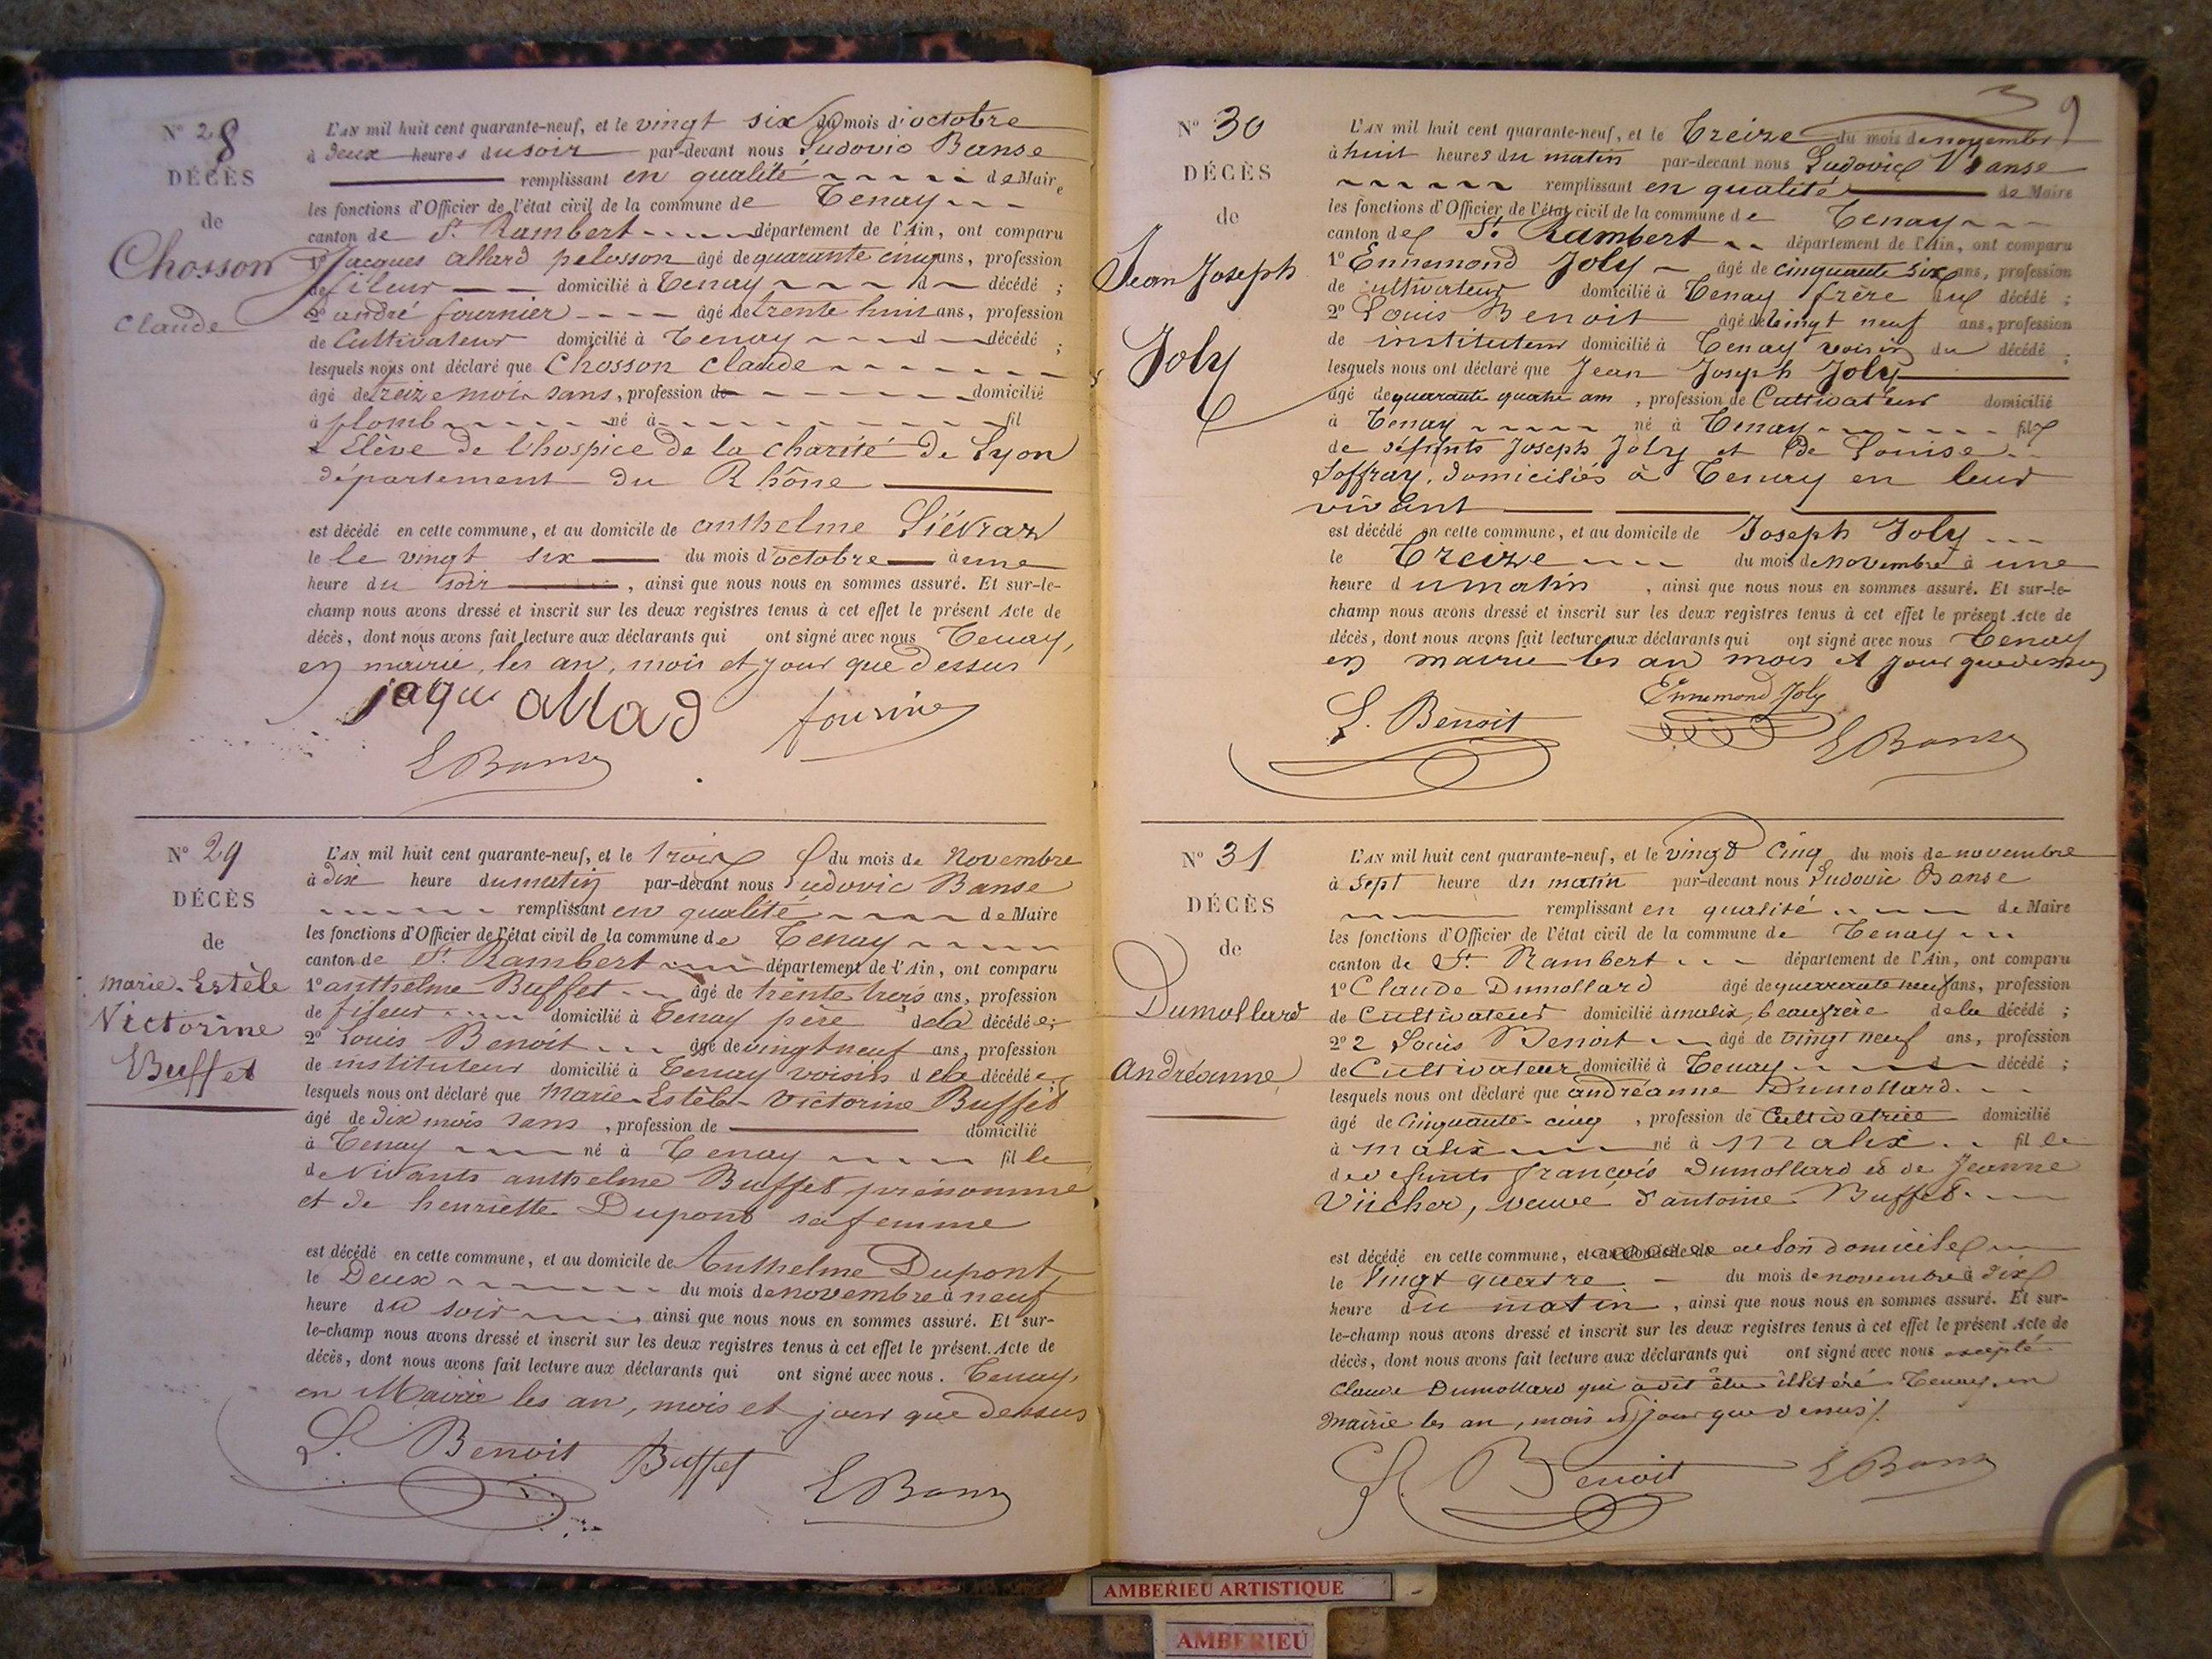 N° 28
DÉCÈS
de
Chosson
Claude
L'AN mil huit cent quarante-neuf, et le vingt six du mois d'octobre
à deux heures du soir par-devant nous Ludovic Banse
remplissant en qualité de Maire
les fonctions d'Officier de l'état civil de la commune de Tenay
canton de St Rambert département de l'Ain, ont comparu
1° Jacques allard pelosson âgé de quarante cinq ans, profession
de fileur domicilié à Tenay d décédé ;
2° andré fournier âgé de trente huit ans, profession
de Cultivateur domicilié à Tenay d décédé ;
lesquels nous ont déclaré que Chosson Claude
âgé de treize mois sans, profession de domicilié
à plomb né à fil
Elève de l'hospice de la charité de Lyon
département du Rhône
est décédé en cette commune, et au domicile de anthelme Liévraz
le le vingt six du mois d'octobre à une
heure du soir, ainsi que nous nous en sommes assuré. Et sur-le-
champ nous avons dressé et inscrit sur les deux registres tenus à cet effet le présent Acte de
décès, dont nous avons fait lecture aux déclarants qui ont signé avec nous Tenay,
en mairie, les an, mois et jour que dessus
jaque allad fournie
L Banse
N° 29
DÉCÈS
de
marie-Estèle
Victorine
Buffet
L'AN mil huit cent quarante-neuf, et le trois du mois de Novembre
à dix heure du matin par-devant nous Ludovic Banse
remplissant en qualité de Maire
les fonctions d'Officier de l'état civil de la commune de Tenay
canton de St Rambert département de l'Ain, ont comparu
1° anthelme Buffet âgé de trente trois ans, profession
de fileur domicilié à Tenay père de la décédée ;
2° Louis Benoit âgé de vingt neuf ans, profession
de instituteur domicilié à Tenay voisin de la décédée ;
lesquels nous ont déclaré que Marie-Estèle-Victorine Buffet
âgé de dix mois sans, profession de domicilié
à Tenay né à Tenay fil le
de Vivants anthelme Buffet prénommé
et de henriette Dupont sa femme
est décédé en cette commune, et au domicile de Anthelme Dupont
le Deux du mois de novembre à neuf
heure du soir, ainsi que nous nous en sommes assuré. Et sur-
le-champ nous avons dressé et inscrit sur les deux registres tenus à cet effet le présent Acte de
décès, dont nous avons fait lecture aux déclarants qui ont signé avec nous. Tenay,
en Mairie les an, mois et jour que dessus
L. Benoit Buffet L Banse
9
N° 30
DÉCÈS
de
Jean Joseph
Joly
L'AN mil huit cent quarante-neuf, et le Treize du mois de novembre
à huit heures du matin par-devant nous Ludovic Banse
remplissant en qualité de Maire
les fonctions d'Officier de l'état civil de la commune de Tenay
canton de St Rambert département de l'Ain, ont comparu
1° Ennemond Joly âgé de cinquante six ans, profession
de cultivateur domicilié à Tenay frère du décédé ;
2° Louis Benoit âgé de vingt neuf ans, profession
de instituteur domicilié à Tenay voisin du décédé ;
lesquels nous ont déclaré que Jean Joseph Joly
âgé de quarante quatre ans, profession de Cultivateur domicilié
à Tenay né à Tenay fils
de défunts Joseph Joly et de Louise
Joffray, domiciliés à Tenay en leur
vivant
est décédé en cette commune, et au domicile de Joseph Joly
le Treize du mois de novembre à une
heure du matin, ainsi que nous nous en sommes assuré. Et sur-le-
champ nous avons dressé et inscrit sur les deux registres tenus à cet effet le présent Acte de
décès, dont nous avons fait lecture aux déclarants qui ont signé avec nous Tenay
en mairie les an mois et jour que dessus
L. Benoit Ennemond Joly L Banse
N° 31
DÉCÈS
de
Dumollard
andréanne
L'AN mil huit cent quarante-neuf, et le vingt cinq du mois de novembre
à sept heure du matin par-devant nous Ludovic Banse
remplissant en qualité de Maire
les fonctions d'Officier de l'état civil de la commune de Tenay
canton de St Rambert département de l'Ain, ont comparu
1° Claude Dumollard âgé de quarante neuf ans, profession
de Cultivateur domicilié à malix, beaufrère de la décédé ;
2° 2 Louis Benoit âgé de vingt neuf ans, profession
de Cultivateur domicilié à Tenay d décédé ;
lesquels nous ont déclaré que andréanne Dumollard
âgé de Cinquante-cinq, profession de Cultivatrice domicilié
à malix né à malix fil le
de defunts françois Dumollard et de Jeanne
Vücher, veuve d'antoine Buffet
est décédé en cette commune, et au domicile de a son domicile
le Vingt quatre du mois de novembre à dix
heure du matin, ainsi que nous nous en sommes assuré. Et sur-
le-champ nous avons dressé et inscrit sur les deux registres tenus à cet effet le présent Acte de
décès, dont nous avons fait lecture aux déclarants qui ont signé avec nous excepté
Claude Dumollard qui a dit être illitéré Tenay, en
mairie les an, mois et jour que dessus
L. Benoit L Banse
AMBERIEU ARTISTIQUE
AMBERIEU